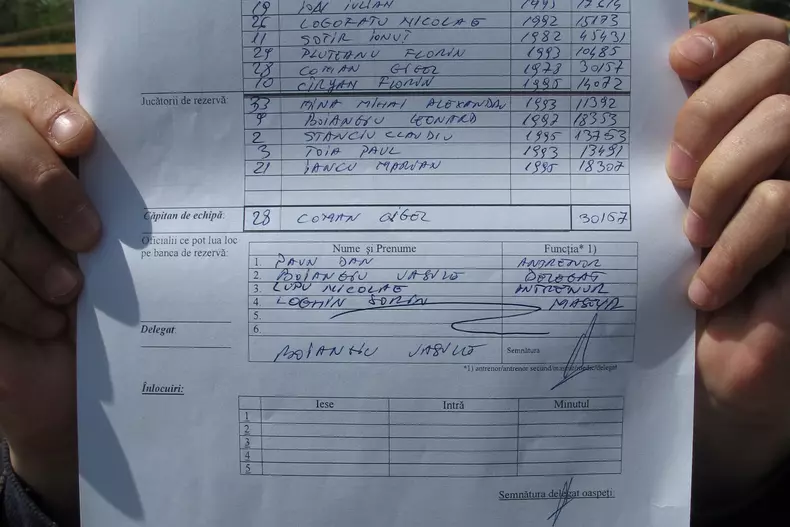 19 ION IULIAN 1995
26 LOGOFATU NICOLAE 1992 15173
11 SOTIR IONUȚ 1982 45431
29 PLUTEANU FLORIN 1993 10485
28 COMAN GIGEL 1978 30157
10 FLORIN 1995 14072
Jucătorii de rezervă: 33 MINA MIHAI ALEXANDRU 1993 11392
9 BOIANGIU LEONARD 1997 18353
2 STANCIU CLAUDIU 1995 13753
3 TOIA PAUL 1993 13491
21 IANCU MARIAN 1995 18307
Căpitan de echipă: 28 COMAN GIGEL 30157
Oficialii ce pot lua loc pe banca de rezervă: Nume și Prenume Funcția* 1)
1. PAUN DAN ANTRENOR
2. BOIANGIU VASILE DELEGAT
3. LUPU NICOLAE ANTRENOR
4. LOGHIN SORIN MASEUR
5.
6.
Delegat: BOIANGIU VASILE Semnătura
*1) antrenor/antrenor secund/masor/medic/delegat
Înlocuiri:
Iese Intră Minutul
1
2
3
4
5
Semnătura delegat oaspeți: